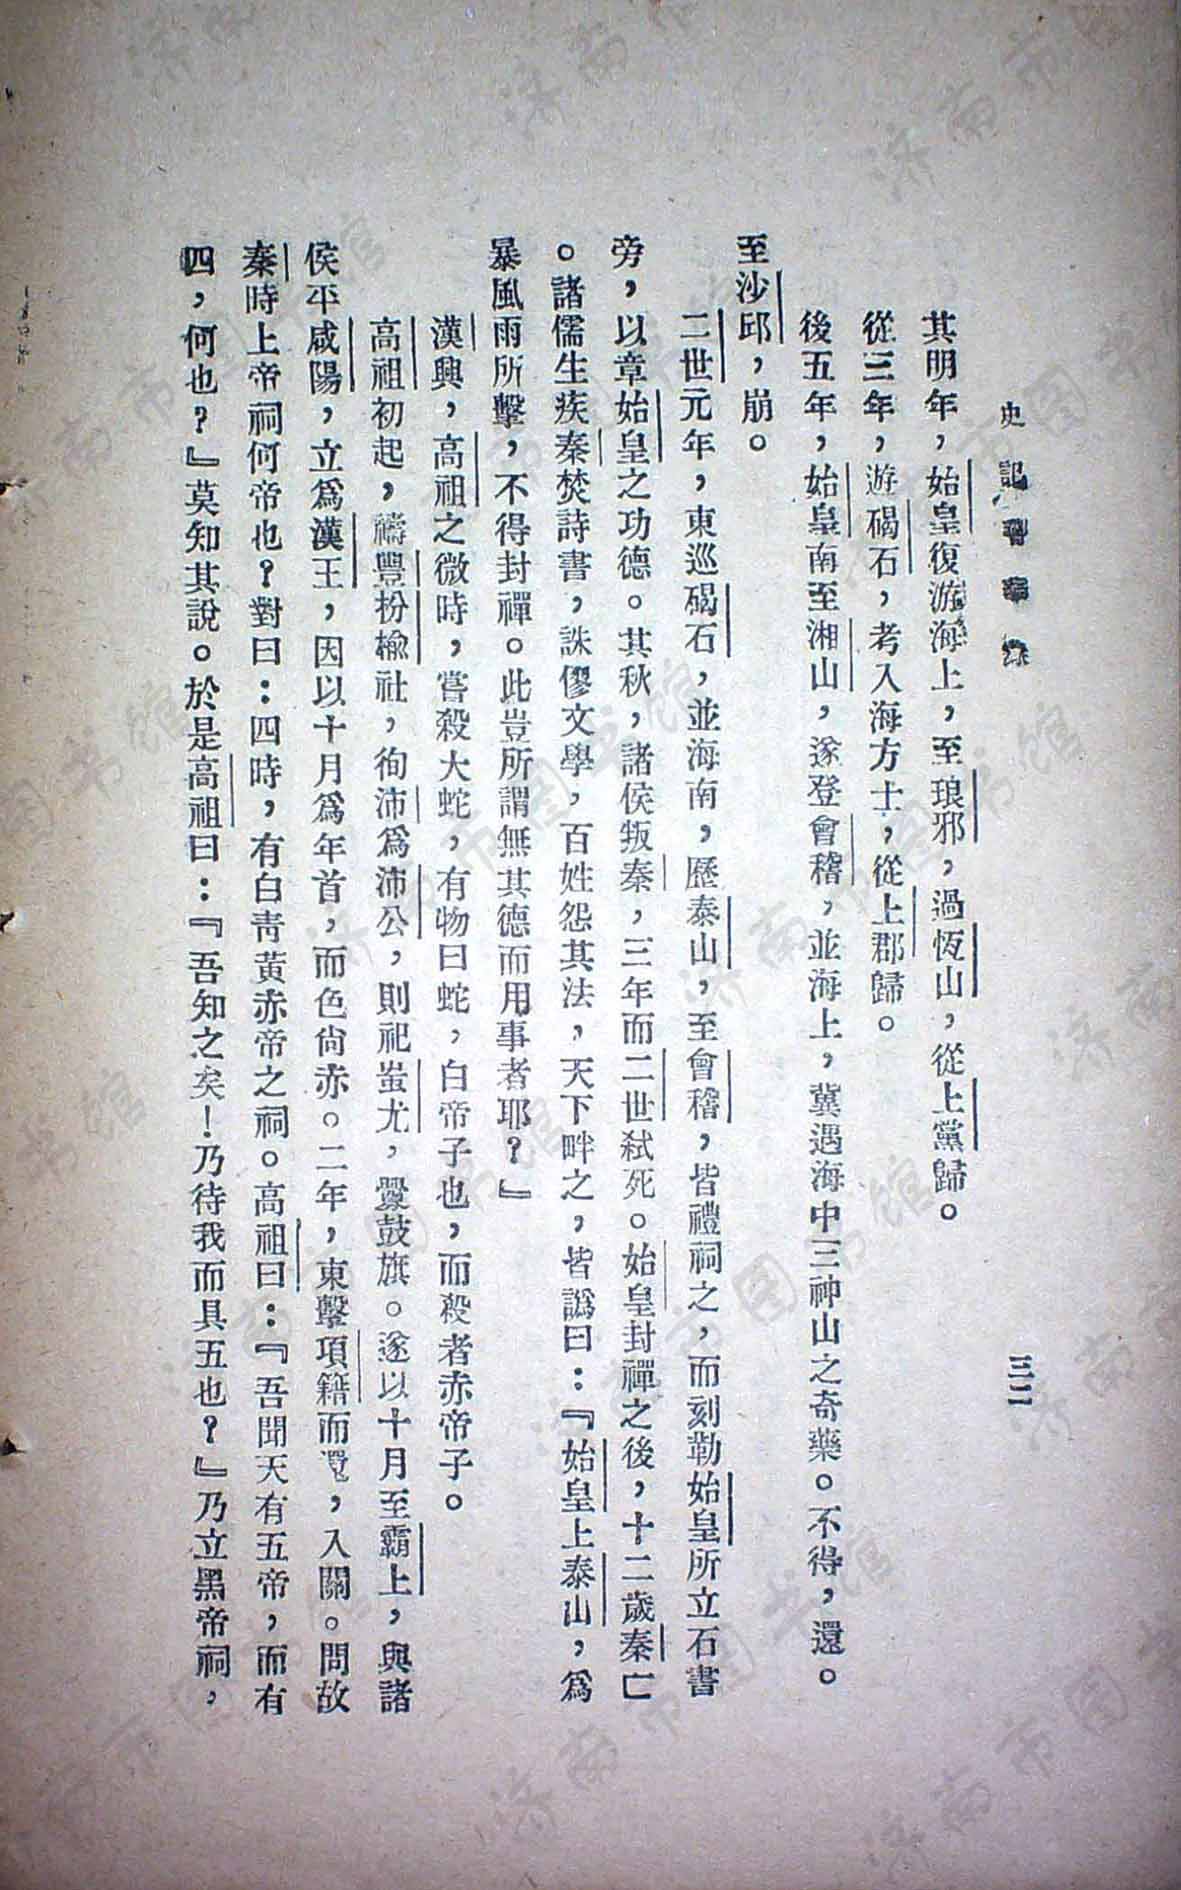 史記
三二
其明年，始皇復游海上，至琅邪，過恆山，從上黨歸。
從三年，游碣石，考入海方士，從上郡歸。
後五年，始皇南至湘山，遂登會稽，並海上，冀遇海中三神山之奇藥。不得，還。
至沙邱，崩。
二世元年，東巡碣石，並海南，歷泰山，至會稽，皆禮祠之，而刻勒始皇所立石書
旁，以章始皇之功德。其秋，諸侯叛秦，三年而二世弒死。始皇封禪之後，十二歲秦亡
。諸儒生疾秦焚詩書，誅僇文學，百姓怨其法，天下畔之，皆譌曰：『始皇上泰山，爲
暴風雨所擊，不得封禪。此豈所謂無其德而用事者耶？』
漢興，高祖之微時，嘗殺大蛇，有物曰蛇，白帝子也，而殺者赤帝子。
高祖初起，禱豐枌榆社，徇沛爲沛公，則祀蚩尤，釁鼓旗。遂以十月至霸上，與諸
侯平咸陽，立爲漢王，因以十月爲年首，而色尙赤。二年，東擊項籍而還，入關。問故
秦時上帝祠何帝也？對曰：四時，有白靑黃赤帝之祠。高祖曰：『吾聞天有五帝，而有
四，何也？』莫知其說。於是高祖曰：『吾知之矣！乃待我而具五也？』乃立黑帝祠，
济南市图书馆